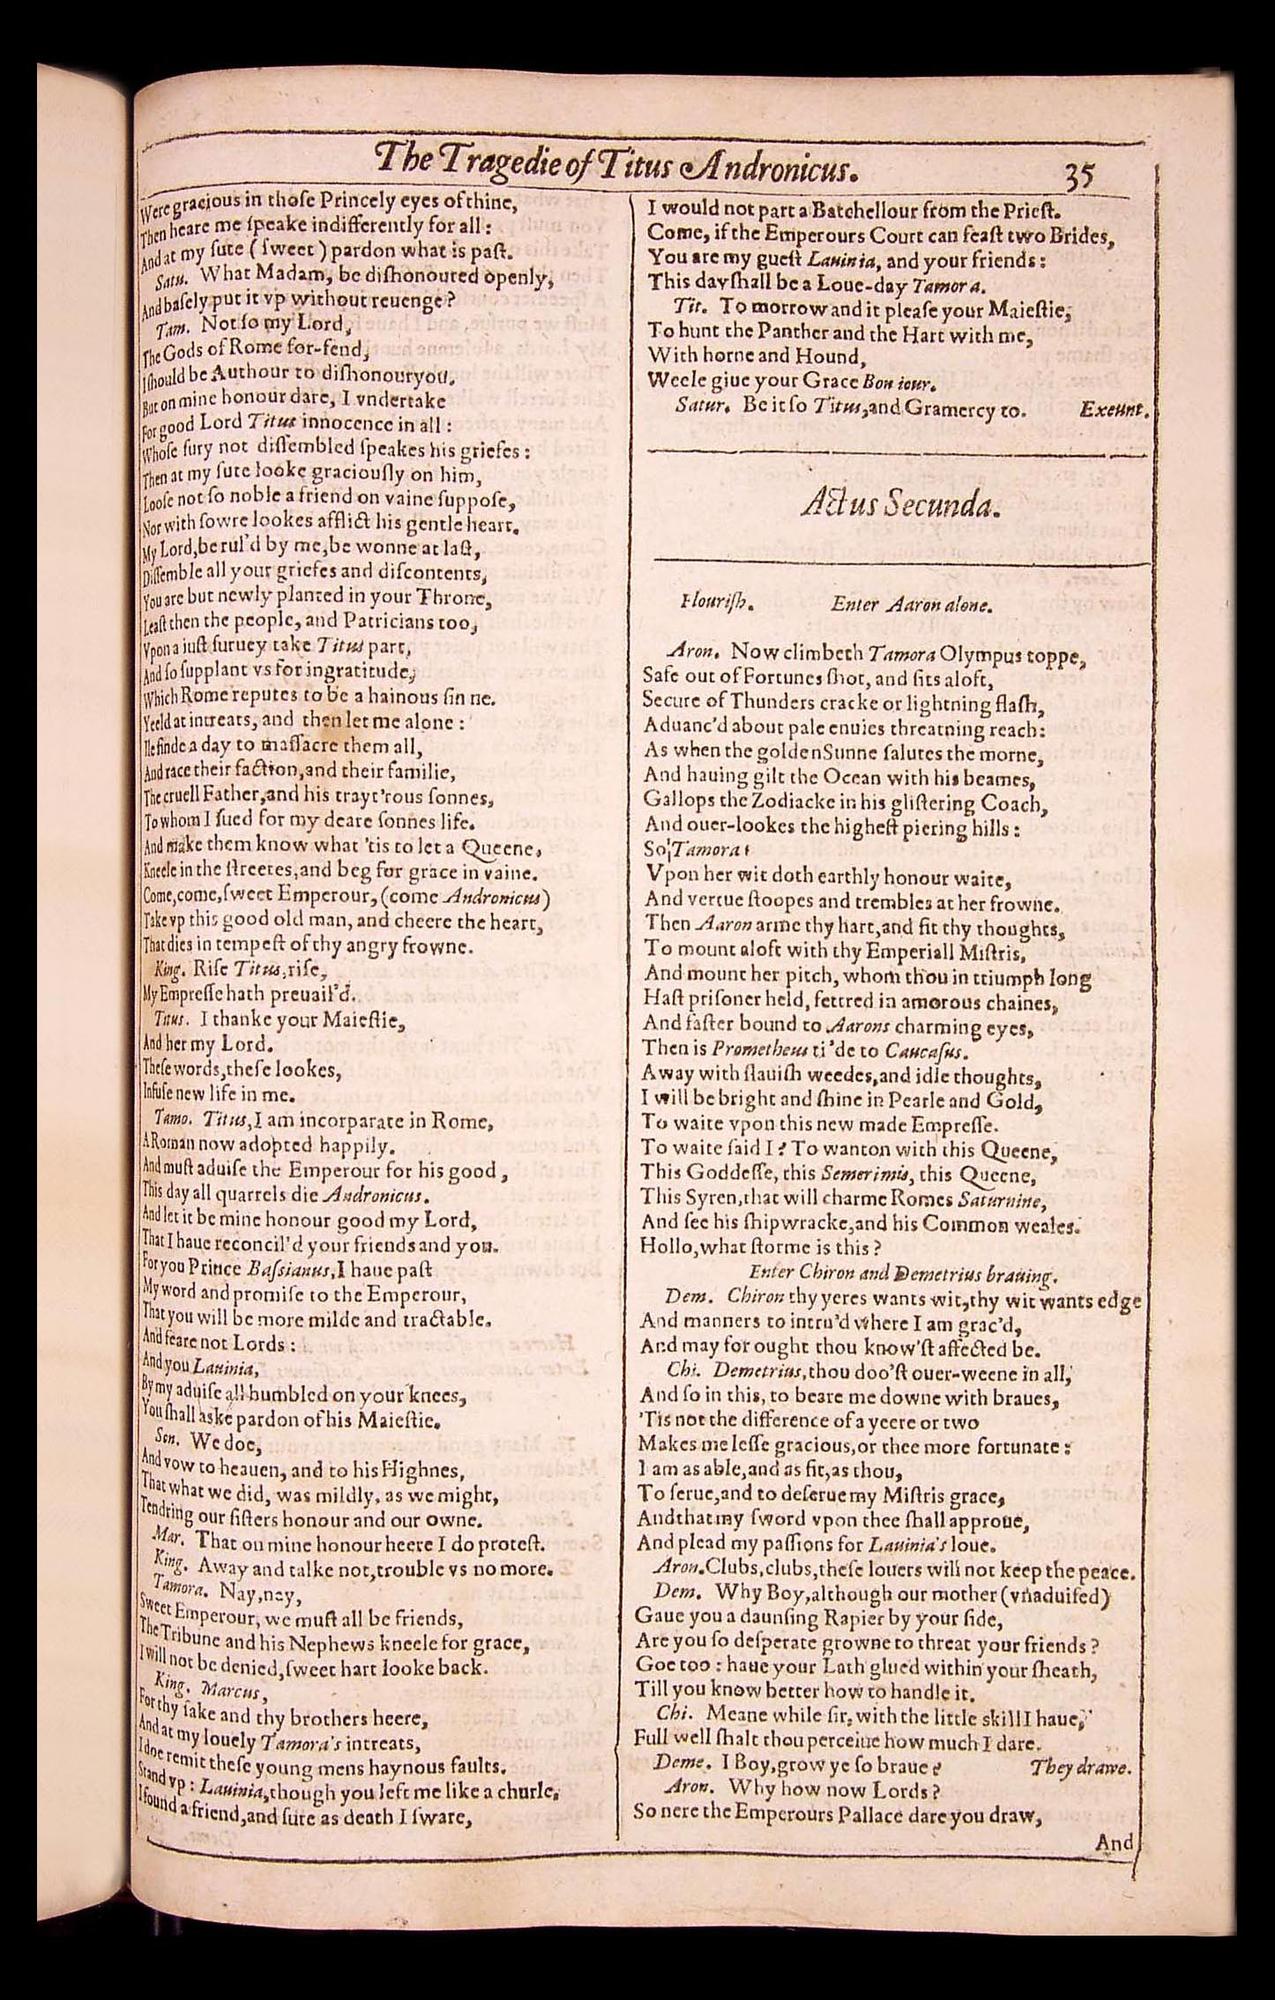 The Tragedie of Titus Andronicus.
35
Were gracious in those Princely eyes of thine,
Then heare me ſpeake indifferently for all:
And at my ſute (ſweet) pardon what is paſt.
Satu. What Madam, be diſhonoured openly,
And baſely put it vp without reuenge?
Tam. Not ſo my Lord,
The Gods of Rome for-fend,
I ſhould be Authour to diſhonour you.
But on mine honour dare, I vndertake
For good Lord Titus innocence in all:
Whoſe fury not diſſembled ſpeakes his griefes:
Then at my ſute looke graciouſly on him,
Looſe not ſo noble a friend on vaine ſuppoſe,
Nor with ſowre lookes afflict his gentle heart.
My Lord, be rul'd by me, be wonne at laſt,
Diſſemble all your griefes and diſcontents,
You are but newly planted in your Throne,
Leaſt then the people, and Patricians too,
Vpon a iuſt ſuruey take Titus part,
And ſo ſupplant vs for ingratitude,
Which Rome reputes to be a hainous ſinne.
Yeeld at intreats, and then let me alone:
Ile finde a day to maſſacre them all,
And race their faction, and their familie,
The cruell Father, and his trayt'rous ſonnes,
To whom I ſued for my deare ſonnes life.
And make them know what 'tis to let a Queene,
Kneele in the ſtreetes, and beg for grace in vaine.
Come, come, ſweet Emperour, (come Andronicus)
Take vp this good old man, and cheere the heart,
That dies in tempeſt of thy angry frowne.
King. Riſe Titus, riſe,
My Empreſſe hath preuail'd.
Titus. I thanke your Maieſtie,
And her my Lord.
Theſe words, theſe lookes,
Infuſe new life in me.
Tamo. Titus, I am incorparate in Rome,
A Roman now adopted happily.
And muſt aduiſe the Emperour for his good,
This day all quarrels die Andronicus.
And let it be mine honour good my Lord,
That I haue reconcil'd your friends and you.
For you Prince Baſsianus, I haue paſt
My word and promiſe to the Emperour,
That you will be more milde and tractable.
And feare not Lords:
And you Lauinia,
By my aduiſe all humbled on your knees,
You ſhall aske pardon of his Maieſtie.
Son. We doe,
And vow to heauen, and to his Highnes,
That what we did, was mildly, as we might,
Tendring our ſiſters honour and our owne.
Mar. That on mine honour heere I do proteſt.
King. Away and talke not, trouble vs no more.
Tamora. Nay, nay,
Sweet Emperour, we muſt all be friends,
The Tribune and his Nephews kneele for grace,
I will not be denied, ſweet hart looke back.
King. Marcus,
For thy ſake and thy brothers heere,
And at my louely Tamora's intreats,
I doe remit theſe young mens haynous faults.
Stand vp: Lauinia, though you left me like a churle,
I found a friend, and ſure as death I ſware,
I would not part a Batchellour from the Prieſt.
Come, if the Emperours Court can feaſt two Brides,
You are my gueſt Lauinia, and your friends:
This day ſhall be a Loue-day Tamora.
Tit. To morrow and it pleaſe your Maieſtie,
To hunt the Panther and the Hart with me,
With horne and Hound,
Weele giue your Grace Bon iour.
Satur. Be it ſo Titus, and Gramercy to. Exeunt.
Actus Secunda.
Flouriſh. Enter Aaron alone.
Aron. Now climbeth Tamora Olympus toppe,
Safe out of Fortunes ſhot, and ſits aloft,
Secure of Thunders cracke or lightning flaſh,
Aduanc'd about pale enuies threatning reach:
As when the golden Sunne ſalutes the morne,
And hauing gilt the Ocean with his beames,
Gallops the Zodiacke in his gliſtering Coach,
And ouer-lookes the higheſt piering hills:
So Tamora:
Vpon her wit doth earthly honour waite,
And vertue ſtoopes and trembles at her frowne.
Then Aaron arme thy hart, and fit thy thoughts,
To mount aloft with thy Emperiall Miſtris,
And mount her pitch, whom thou in triumph long
Haſt priſoner held, fettred in amorous chaines,
And faſter bound to Aarons charming eyes,
Then is Prometheus ti'de to Caucaſus.
Away with ſlauiſh weedes, and idle thoughts,
I will be bright and ſhine in Pearle and Gold,
To waite vpon this new made Empreſſe.
To waite ſaid I? To wanton with this Queene,
This Goddeſſe, this Semerimis, this Queene,
This Syren, that will charme Romes Saturnine,
And ſee his ſhipwracke, and his Common weales.
Hollo, what ſtorme is this?
Enter Chiron and Demetrius brauing.
Dem. Chiron thy yeres wants wit, thy wit wants edge
And manners to intru'd where I am grac'd,
And may for ought thou know'ſt affected be.
Chi. Demetrius, thou doo'ſt ouer-weene in all,
And ſo in this, to beare me downe with braues,
'Tis not the difference of a yeere or two
Makes me leſſe gracious, or thee more fortunate:
I am as able, and as fit, as thou,
To ſerue, and to deſerue my Miſtris grace,
And that my ſword vpon thee ſhall approue,
And plead my paſſions for Lauinia's loue.
Aron. Clubs, clubs, theſe louers will not keep the peace.
Dem. Why Boy, although our mother (vnaduiſed)
Gaue you a daunſing Rapier by your ſide,
Are you ſo deſperate growne to threat your friends?
Goe too: haue your Lath glued within your ſheath,
Till you know better how to handle it.
Chi. Meane while ſir, with the little skill I haue,
Full well ſhalt thou perceiue how much I dare.
Deme. I Boy, grow ye ſo braue? They drawe.
Aron. Why how now Lords?
So nere the Emperours Pallace dare you draw,
And